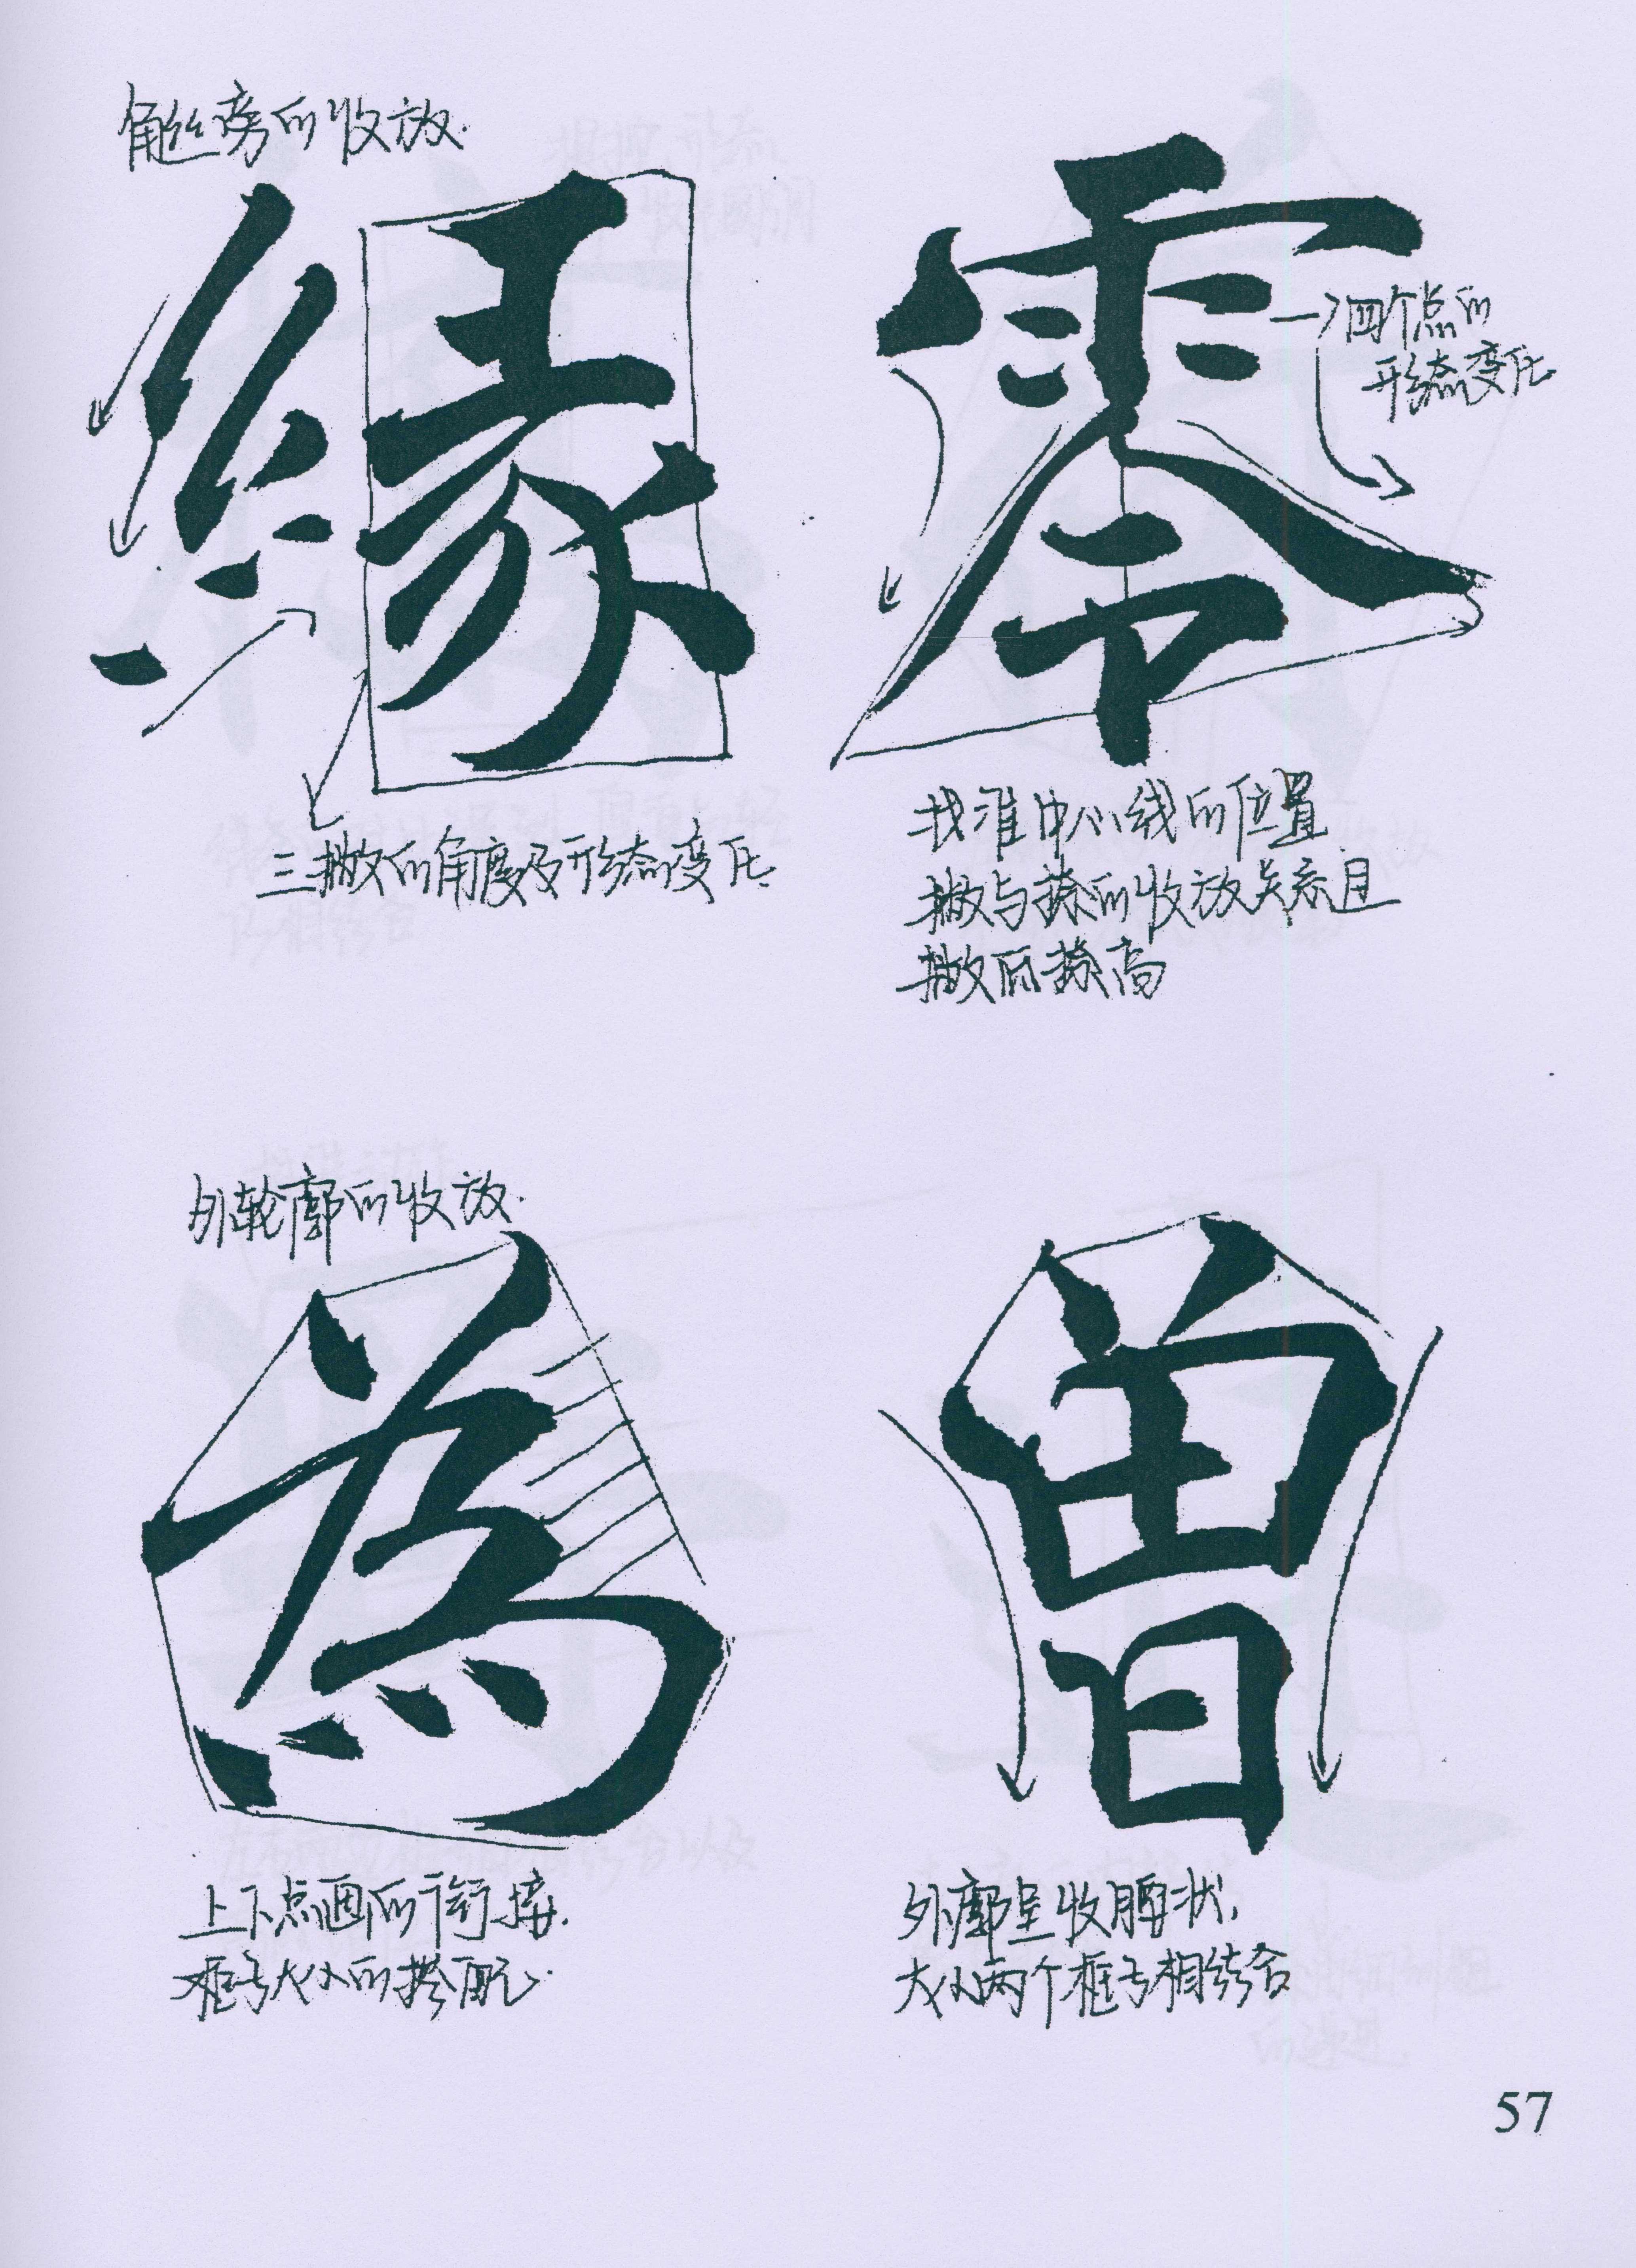 绞丝旁的收放.
緣
三撇的角度及形态的变化.
零
→四个点的
形态变化
找准中心线的位置
撇与捺的收放关系且
撇低捺高
外轮廓的收放.
為
上下点画的衔接.
框与大小的搭配.
曾
外廓呈收腰状,
大小两个框与相结合
57